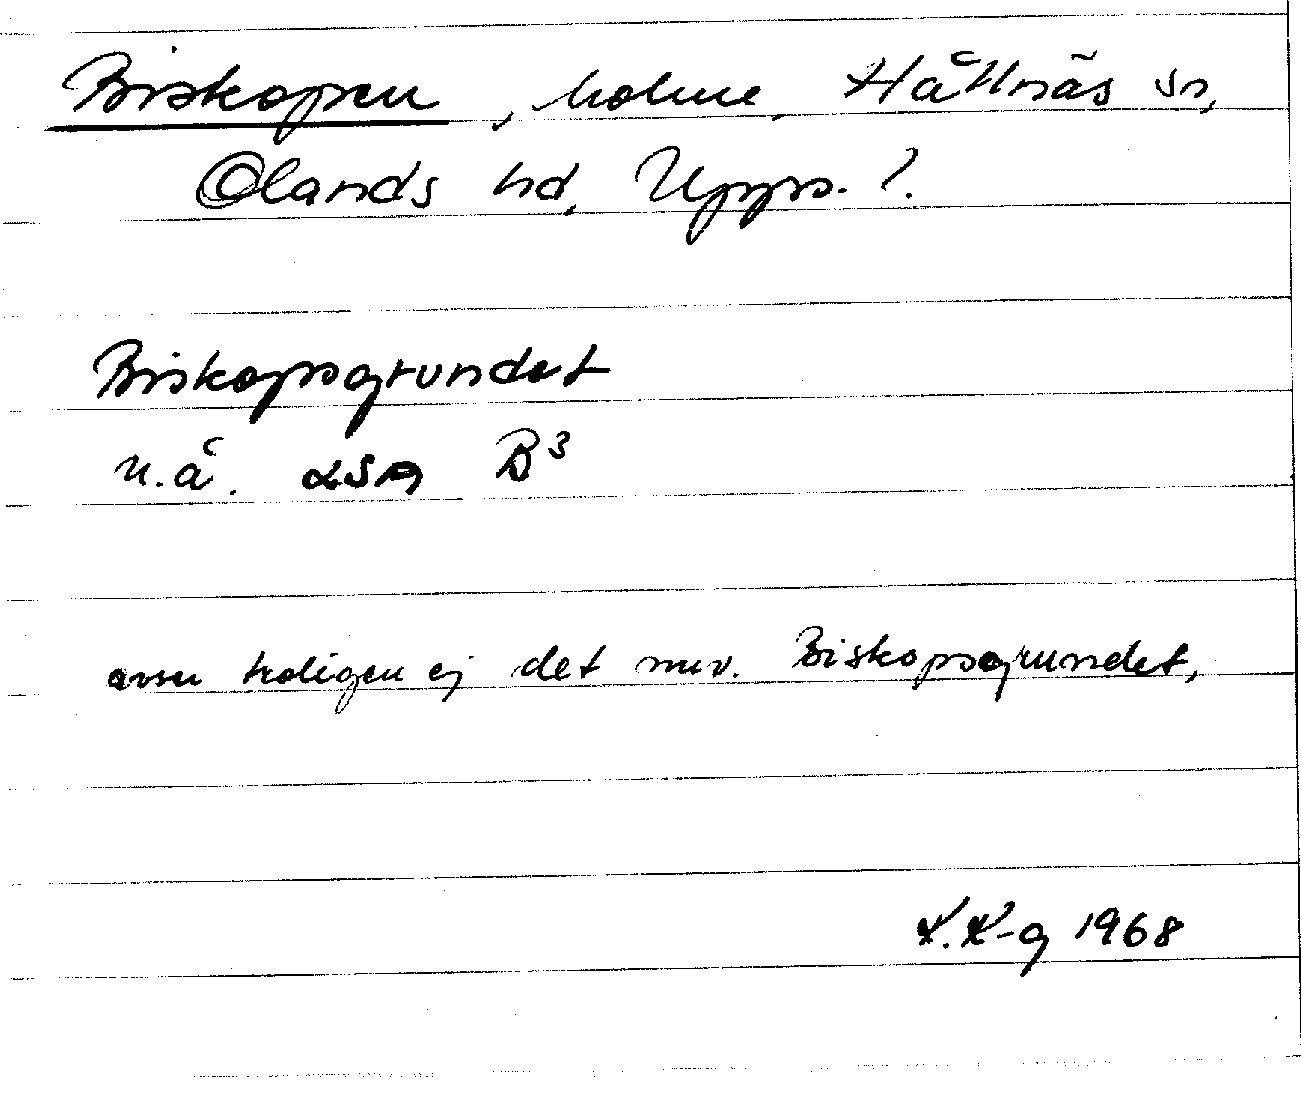 Biskopen, holme, Hållnäs sn,
Olands hd, Upps. l.
Biskopsgrundet
u.å. LSA B3
avser troligen ej det nuv. Biskopsgrundet,
K.K-g 1968